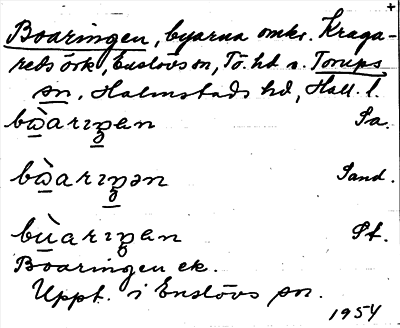 Boaringen, byarna omkr. Kraga-
reds örk, Enslövs sn, Tö. hd o. Torups
sn, Halmstads hd, Hall. l.
bὼarıŋen Sa.
bὼarıŋən Sand.
bùarıŋen St.
Boaringen ek.
Uppt. i Enslövs sn.
1954